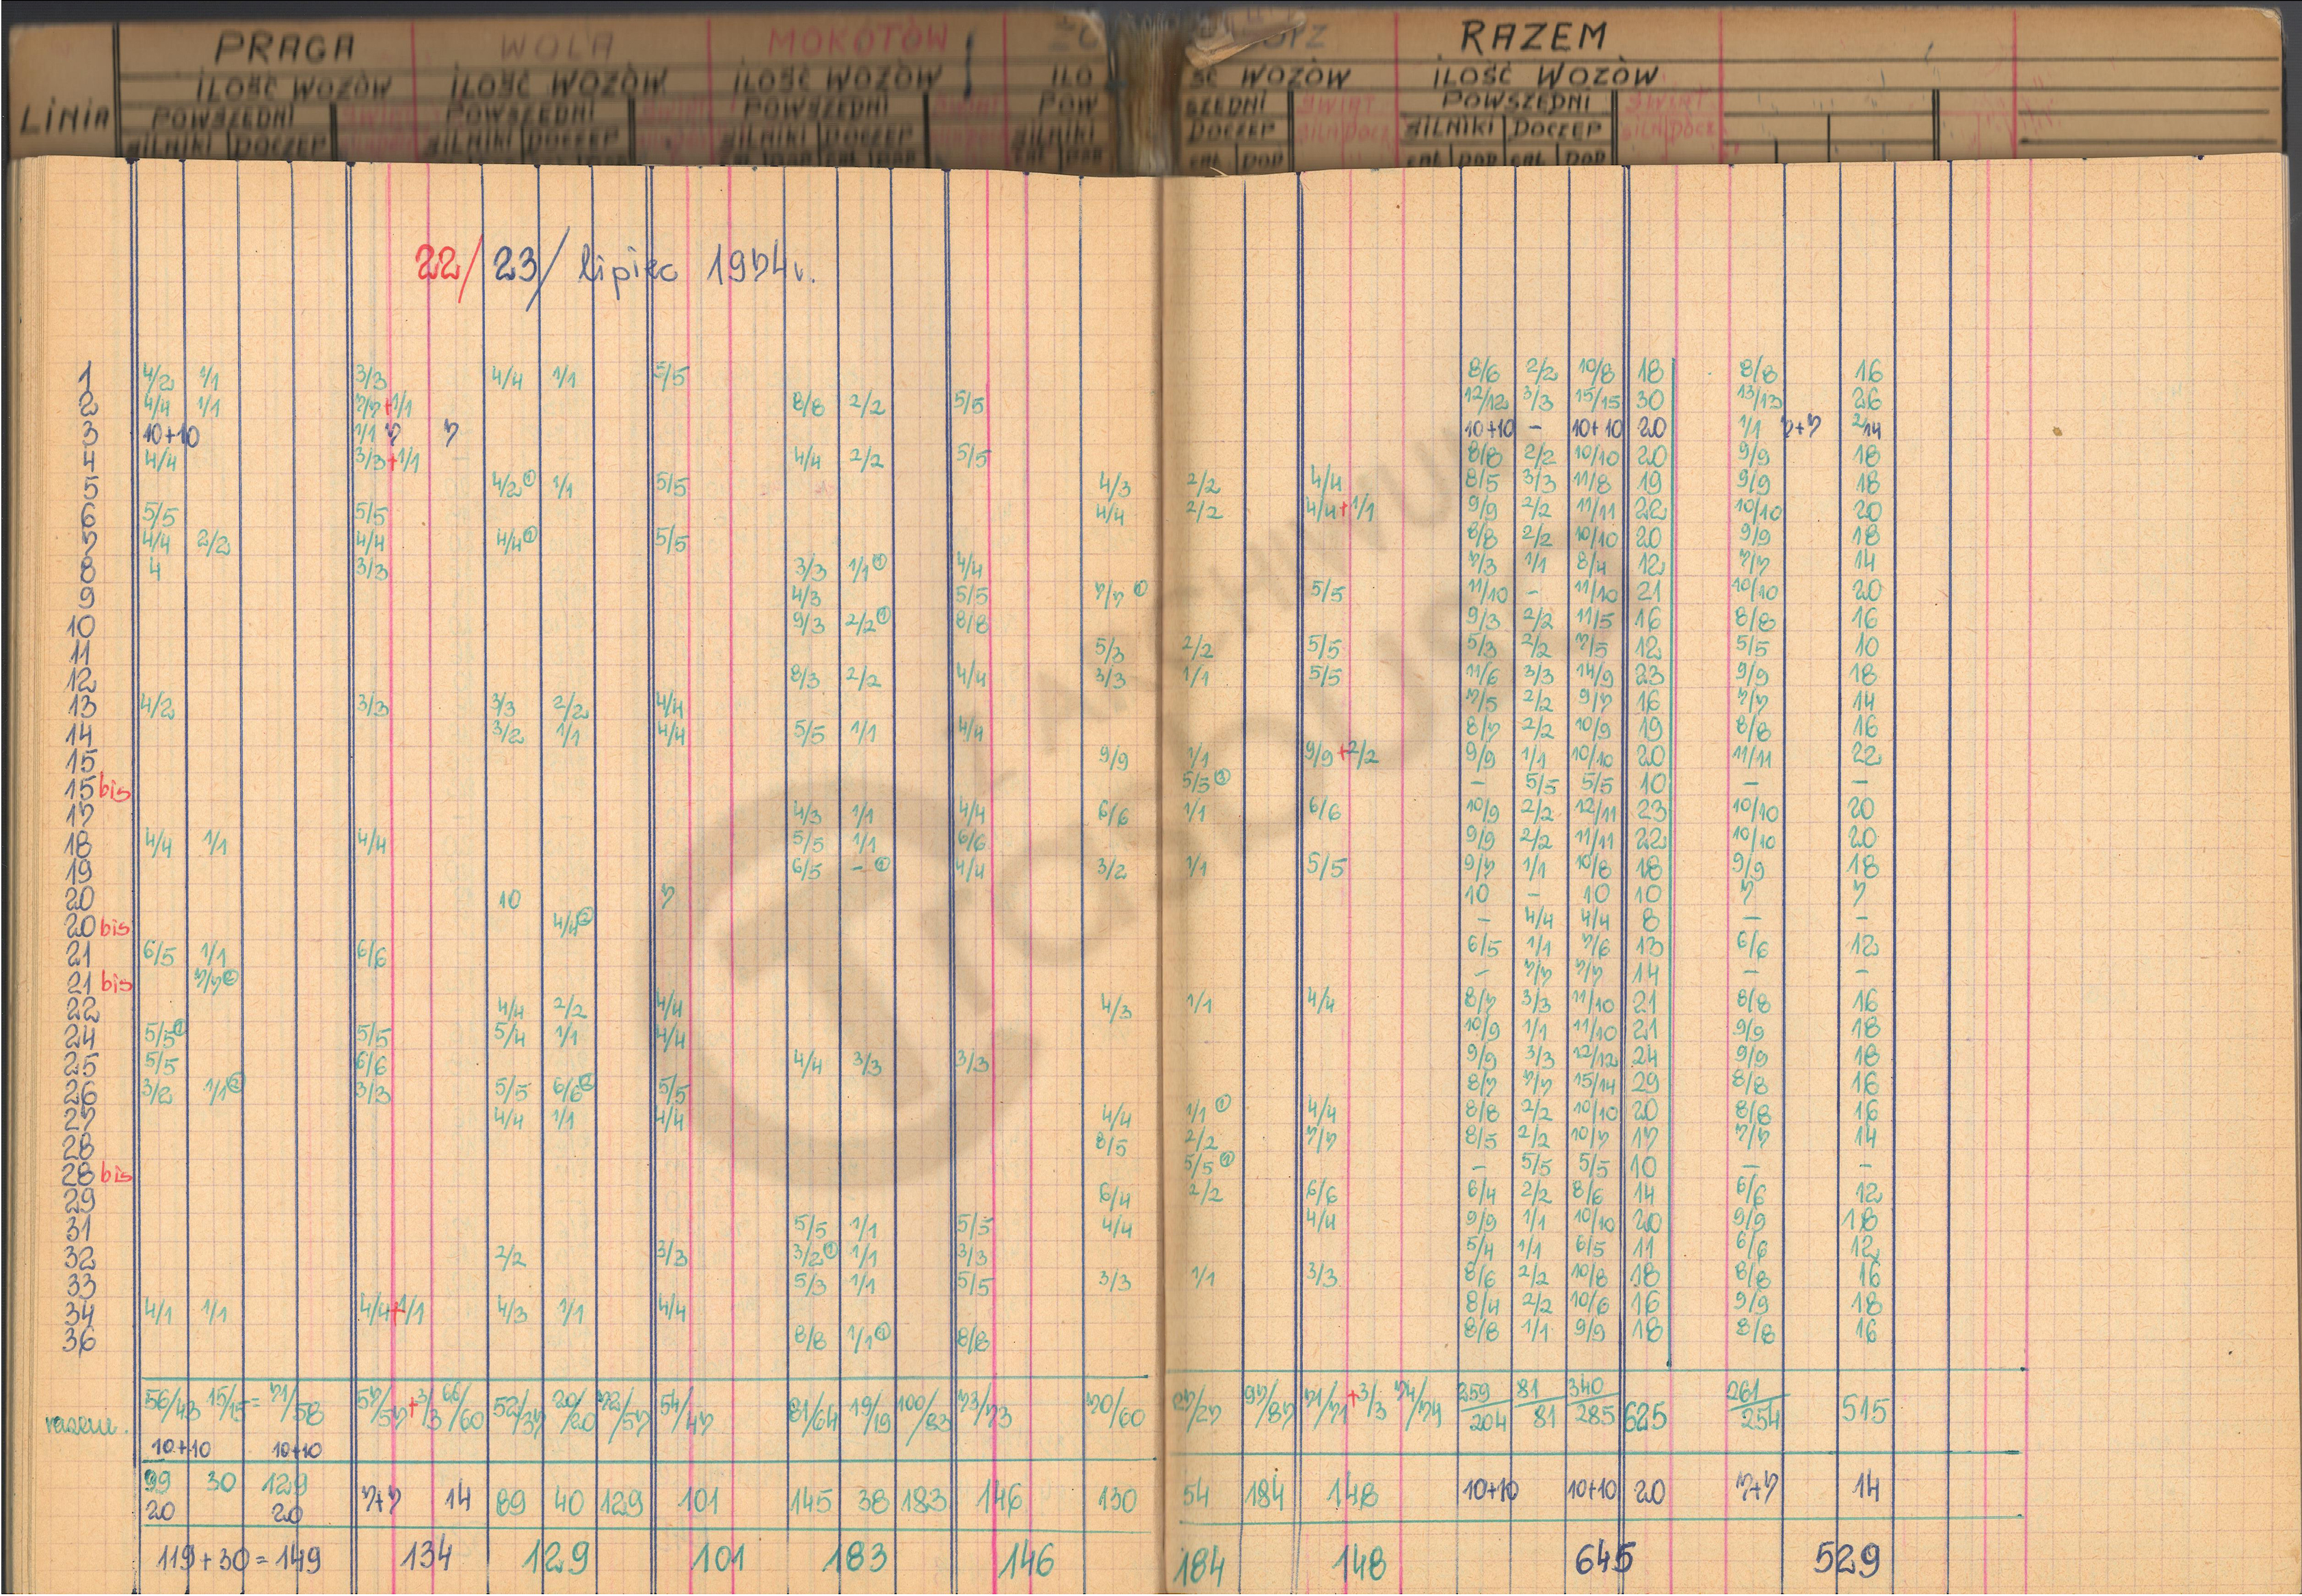 PRAGA WOLA MOKOTÓW RAZEM
ILOŚĆ WOZÓW ILOŚĆ WOZÓW ILOŚĆ WOZÓW ILO ŚĆ WOZÓW ILOŚĆ WOZÓW
LINIA POWSZEDNI POWSZEDNI POWSZEDNI POW SZEDNI ŚWIĘT POWSZEDNI ŚWIĘT
SILNIKI DOCZEP SILNIKI DOCZEP SILNIKI DOCZEP SILNIKI DOCZEP SILN DOCZ SILNIKI DOCZEP SILN DOCZ
CAŁ DOD CAŁ DOD CAŁ DOD CAŁ DOD
22/23/ lipiec 1954r.
1 4/2 1/1 3/3 4/4 1/1 5/5 8/6 2/2 10/8 18 8/8 16
2 4/4 1/1 7/7+1/1 8/8 2/2 5/5 12/12 3/3 15/15 30 13/13 26
3 10+10 1/1 7 7 10+10 - 10+10 20 1/1 7+7 2 14
4 4/4 3/3+1/1 4/4 2/2 5/5 8/8 2/2 10/10 20 9/9 18
5 4/2① 1/1 5/5 4/3 2/2 4/4 8/5 3/3 11/8 19 9/9 18
6 5/5 5/5 4/4 2/2 4/4+1/1 9/9 2/2 11/11 22 10/10 20
7 4/4 2/2 4/4 4/4① 5/5 8/8 2/2 10/10 20 9/9 18
8 4 3/3 3/3 1/1① 4/4 7/3 1/1 8/4 12 7/7 14
9 4/3 5/5 7/7① 5/5 11/10 - 11/10 21 10/10 20
10 9/3 2/2① 8/8 9/3 2/2 11/5 16 8/8 16
11 5/3 2/2 5/5 5/3 2/2 7/5 12 5/5 10
12 8/3 2/2 4/4 3/3 1/1 5/5 11/6 3/3 14/9 23 9/9 18
13 4/2 3/3 3/3 2/2 4/4 7/5 2/2 9/7 16 7/7 14
14 3/2 1/1 4/4 5/5 1/1 4/4 8/7 2/2 10/9 19 8/8 16
15 9/9 1/1 9/9+2/2 9/9 1/1 10/10 20 11/11 22
15 bis 5/5 - 5/5 5/5 10 - -
17 4/3 1/1 4/4 6/6 1/1 6/6 10/9 2/2 12/11 23 10/10 20
18 4/4 1/1 4/4 5/5 1/1 6/6 9/9 2/2 11/11 22 10/10 20
19 6/5 -① 4/4 3/2 1/1 5/5 9/7 1/1 10/8 18 9/9 18
20 10 7 10 - 10 10 7 7
20 bis 4/4② - 4/4 4/4 8 - -
21 6/5 1/1 6/6 6/5 1/1 7/6 13 6/6 12
21 bis 7/7② - 7/7 7/7 14 - -
22 4/4 2/2 4/4 4/3 1/1 4/4 8/7 3/3 11/10 21 8/8 16
24 5/5① 5/5 5/4 1/1 4/4 10/9 1/1 11/10 21 9/9 18
25 5/5 6/6 4/4 3/3 3/3 9/9 3/3 12/12 24 9/9 18
26 3/2 1/1② 3/3 5/5 6/6 5/5 8/7 7/7 15/14 29 8/8 16
27 4/4 1/1 4/4 4/4 1/1① 4/4 8/8 2/2 10/10 20 8/8 16
28 8/5 2/2 7/7 8/5 2/2 10/7 17 7/7 14
28 bis 5/5① - 5/5 5/5 10 - -
29 6/4 2/2 6/6 6/4 2/2 8/6 14 6/6 12
31 5/5 1/1 5/5 4/4 4/4 9/9 1/1 10/10 20 9/9 18
32 2/2 3/3 3/2① 1/1 3/3 5/4 1/1 6/5 11 6/6 12
33 5/3 1/1 5/5 3/3 1/1 3/3 8/6 2/2 10/8 18 8/8 16
34 4/1 1/1 4/4+1/1 4/3 1/1 4/4 8/4 2/2 10/6 16 9/9 18
36 8/8 1/1① 8/8 8/8 1/1 9/9 18 8/8 16
razem. 56/43 15/15=71/58 57/57+3/3 60/60 52/37 20/20 72/57 54/47 81/64 19/19 100/83 73/73 70/60 27/27 97/87 71/71+3/3 74/74 259/204 81/81 340/285 625 261/254 515
10+10 10+10
99 30 129 7+7 14 89 40 129 101 145 38 183 146 130 54 184 148 10+10 10+10 20 7+7 14
20 20
119+30=149 134 129 101 183 146 184 148 645 529